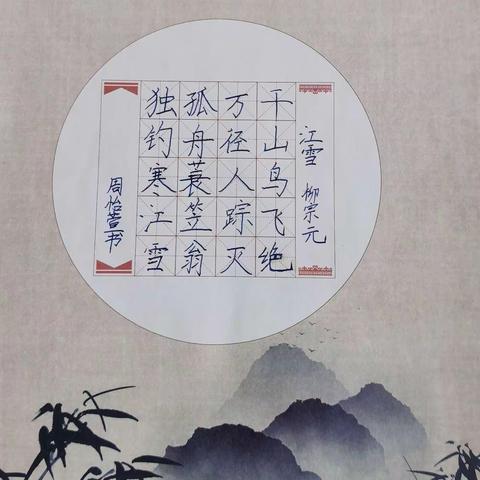 江雪 柳宗元
千山鸟飞绝
万径人踪灭
孤舟蓑笠翁
独钓寒江雪
周怡萱书